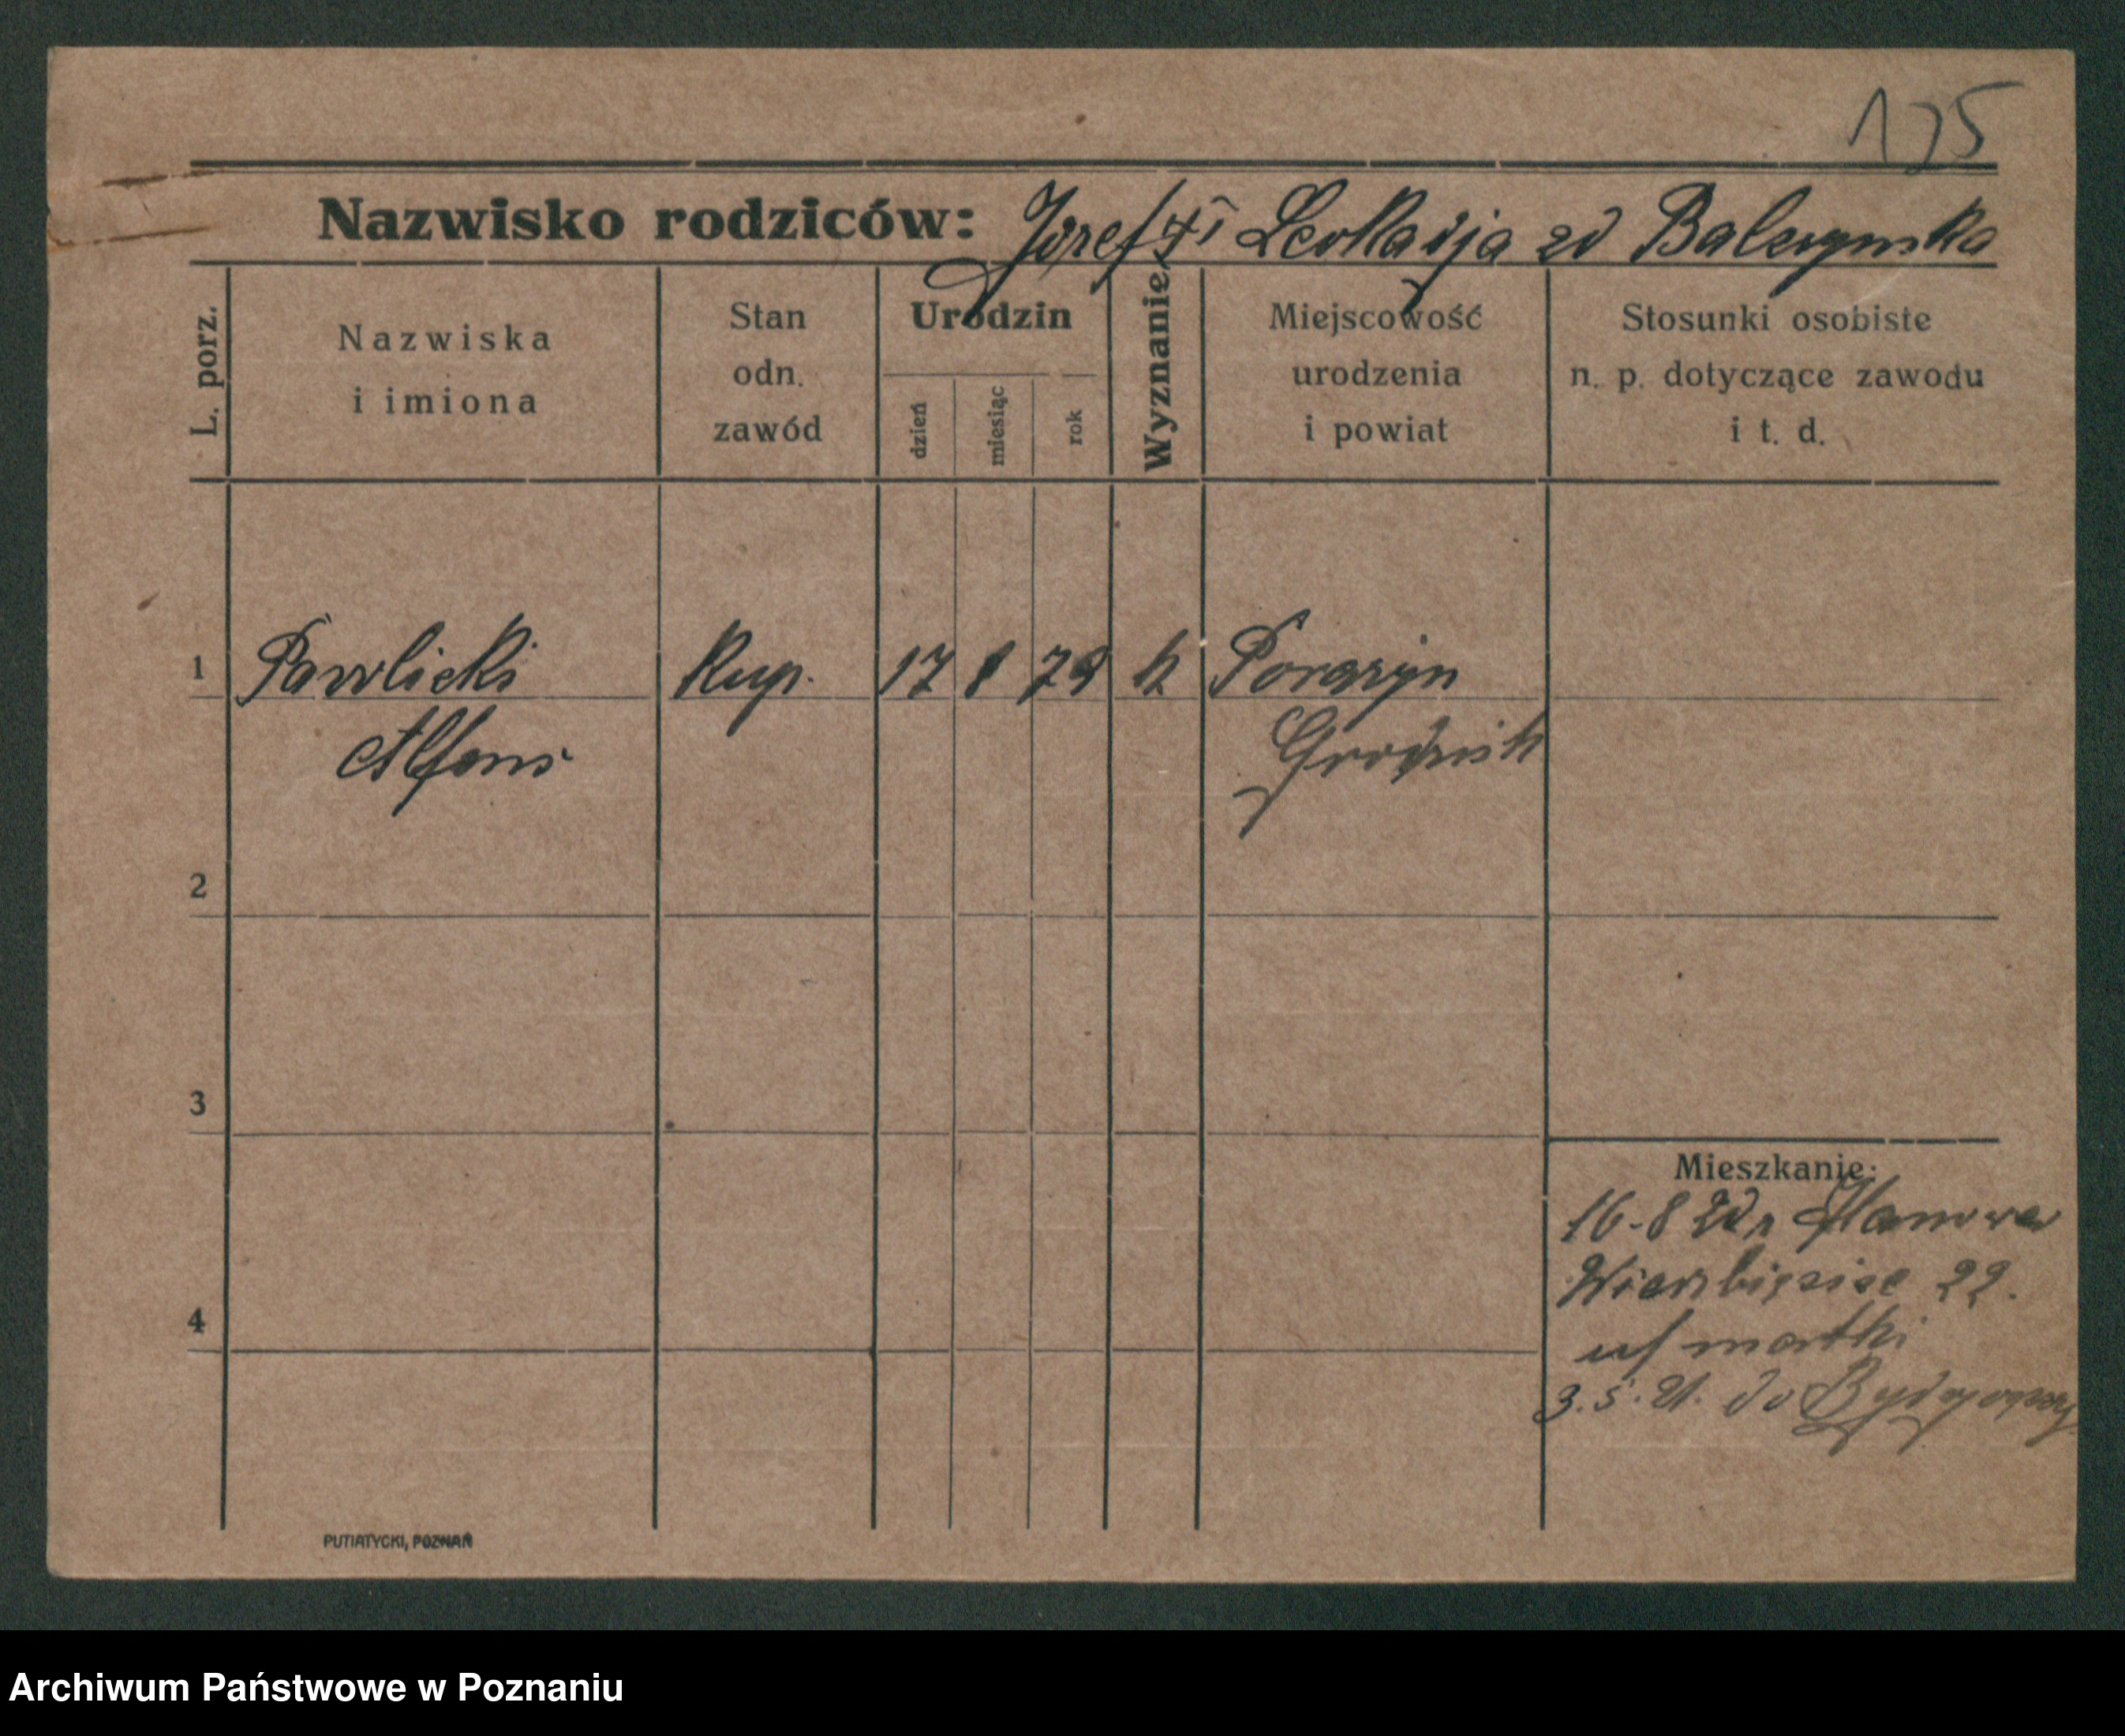 175
Nazwisko rodziców: Józef + i Leokadja zd Balczynska
L. porz.
Nazwiska
i imiona
Stan
odn.
zawód
Urodzin
dzień
miesiąc
rok
Wyznanie
Miejscowość
urodzenia
i powiat
Stosunki osobiste
n. p. dotyczące zawodu
i t. d.
1 Pawlicki Kup. 17 8 79 k Porazyn
Alfons Grodzisk
2
3
4
Mieszkanie:
16-8
Wierzbięcice 22.
u/ matki
3.5.21. do Bydgoszczy
PUTIATYCKI, POZNAŃ
Archiwum Państwowe w Poznaniu